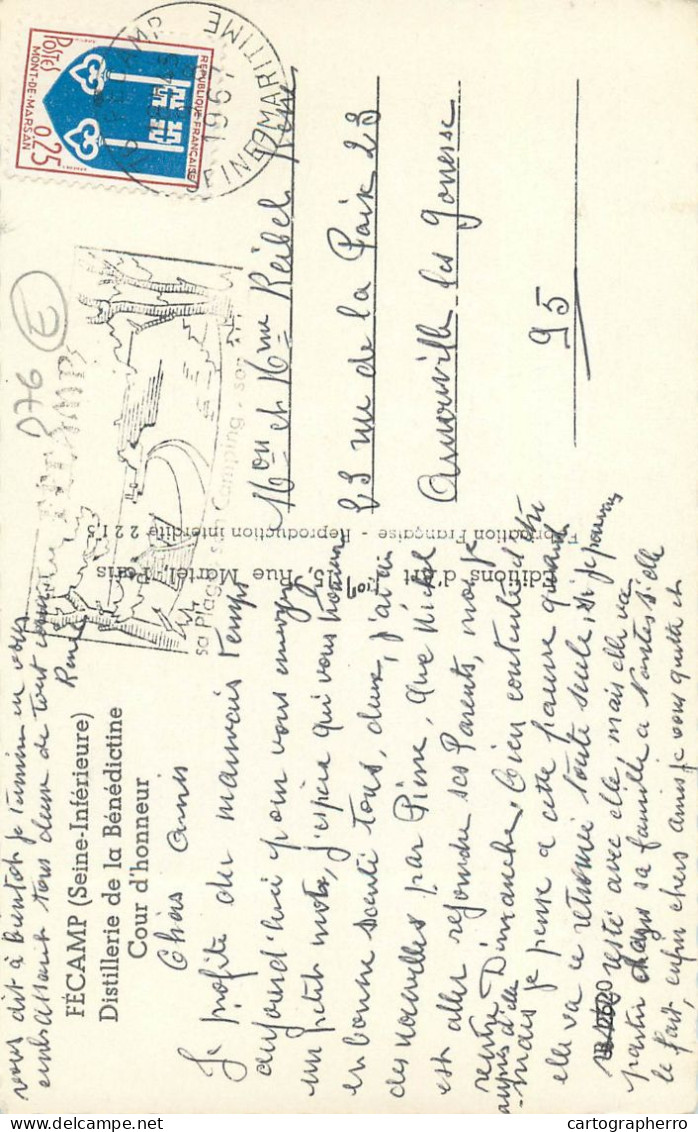 FÉCAMP (Seine-Inférieure)
Distillerie de la Bénédictine
Cour d'honneur
Chers amis
Je profite du mauvais temps
aujourd'hui pour vous envoyer
un petit mots, j'espère qui vous trouvera
en bonne santé tous, deux, j'ai eu
des nouvelles par Pierre, que Michel
est aller rejoindre ses Parents, moi je
rentre Dimanche, bien contente d'être
auprès d'elle
- mais je pense a cette pauvre quand
elle va ce retrouvée toute seule, si je pouvais
resté avec elle, mais elle va
partir chez sa famille a Nantes si elle
le fait, enfin chers amis je vous quitte et
vous dit à bientot je termine en vous
embrassant tous deux de tout cœur
Renée
éditions d'Art
15, Rue Martel, Paris
Fabrication Française - Reproduction interdite 2213
FÉCAMP
sa Plage - son Camping - son
076
E
RÉPUBLIQUE FRANÇAISE
POSTES
0,25
MONT-DE-MARSAN
FECAMP
1967
SEINE MARITIME
Mon et Mme Reibel René
23 rue de la Paix 23
Arnouville les Gonesse
95
cartographerro